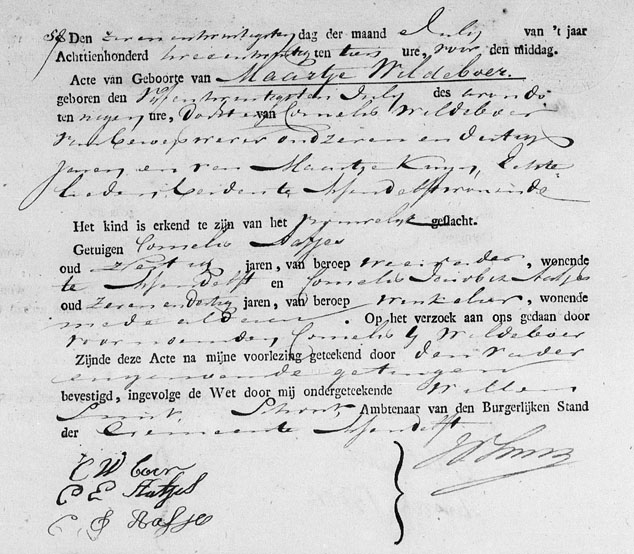 58 Den zeven en twintigsten dag der maand July van 't jaar
Achttienhonderd twee en twintig ten tien ure, voor den middag.
Acte van Geboorte van Maartje Wildeboer.
geboren den vyf en twintigsten July des avonds
ten negen ure, dochter van Cornelis Wildeboer
van beroep wever oud zeven en dertig
jaren en van Maartje Kuyn, Echte-
lieden, beide te Assendelft wonende
Het kind is erkend te zijn van het vrouwelijk geslacht.
Getuigen Cornelis Aafjes
oud zestig jaren, van beroep, wonende
te Assendelft en Cornelis Aafjes
oud zeven en dertig jaren, van beroep winkelier, wonende
mede aldaar. Op het verzoek aan ons gedaan door
voornoemden Cornelis Wildeboer
Zijnde deze Acte na mijne voorlezing geteekend door den vader
en getuigen
bevestigd, ingevolge de Wet door mij ondergeteekende Willem
Smit, Ambtenaar van den Burgerlijken Stand
der Gemeente Assendelft
C W boer
C E Aafjes
C J Aafjes